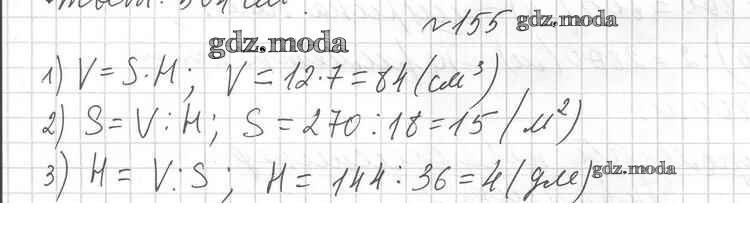 №155 gdz.moda
gdz.moda
1) V = S·H; V = 12·7 = 84 (см³)
2) S = V : H; S = 270 : 18 = 15 (м²)
3) H = V : S; H = 144 : 36 = 4 (дм) gdz.moda